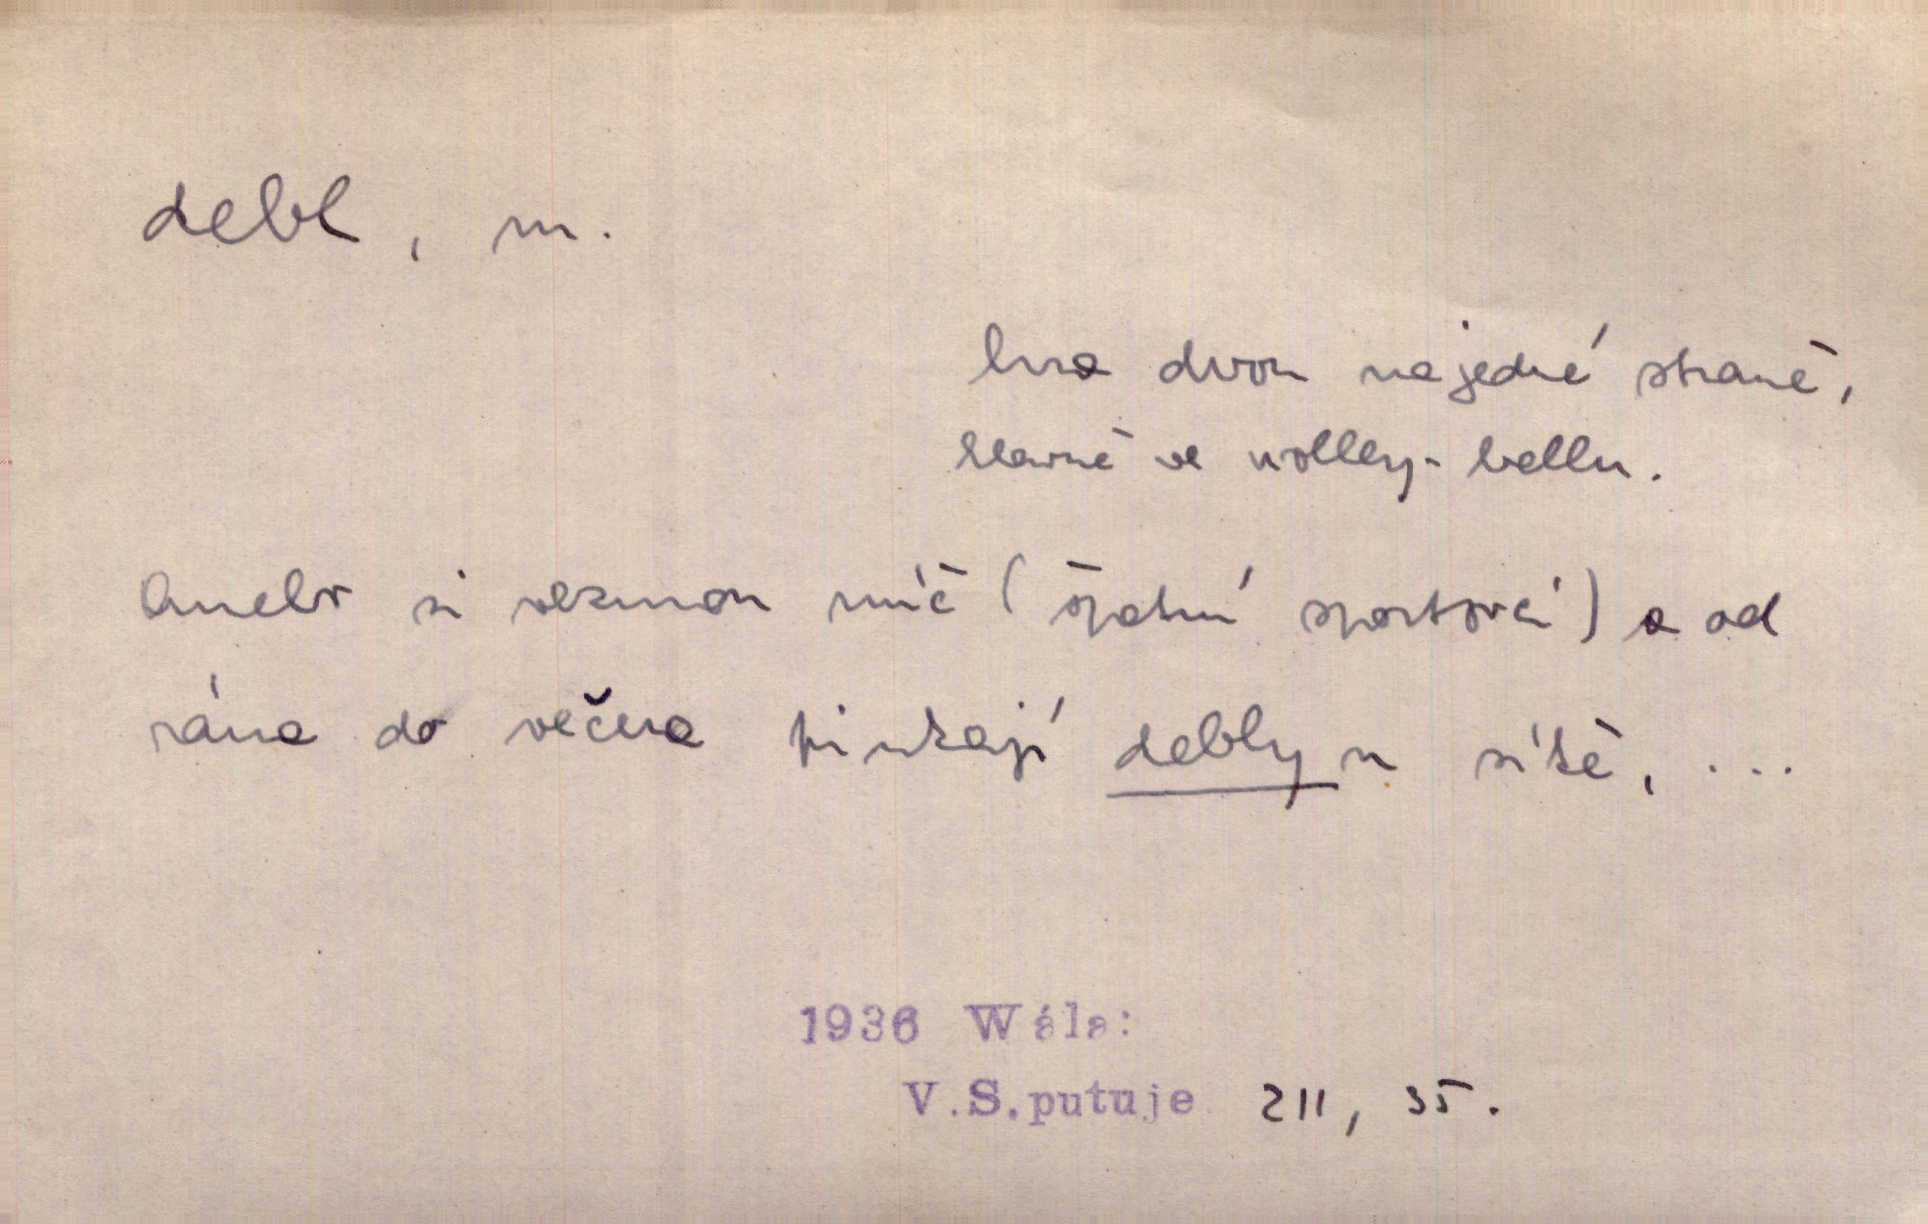 debl, m.
hra dvou na jedné straně,
hlavně ve volley-ballu.
Anebo si vezmou míč (špatní sportovci) a od
rána do večera pinkají debly u sítě, ...
1936 Wála:
V.S.putuje 211, 35.